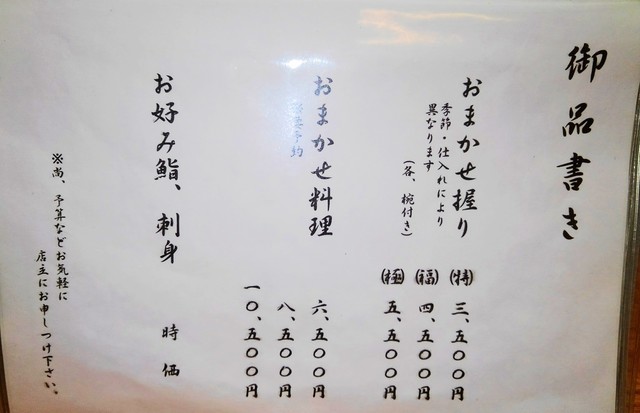 御品書き
おまかせ握り
季節・仕入れにより
異なります
(各、椀付き)
(特) 三、五〇〇円
(福) 四、五〇〇円
(極) 五、五〇〇円
おまかせ料理
※要予約
六、五〇〇円
八、五〇〇円
一〇、五〇〇円
お好み鮨、刺身 時価
※尚、予算などお気軽に
店主にお申しつけ下さい。